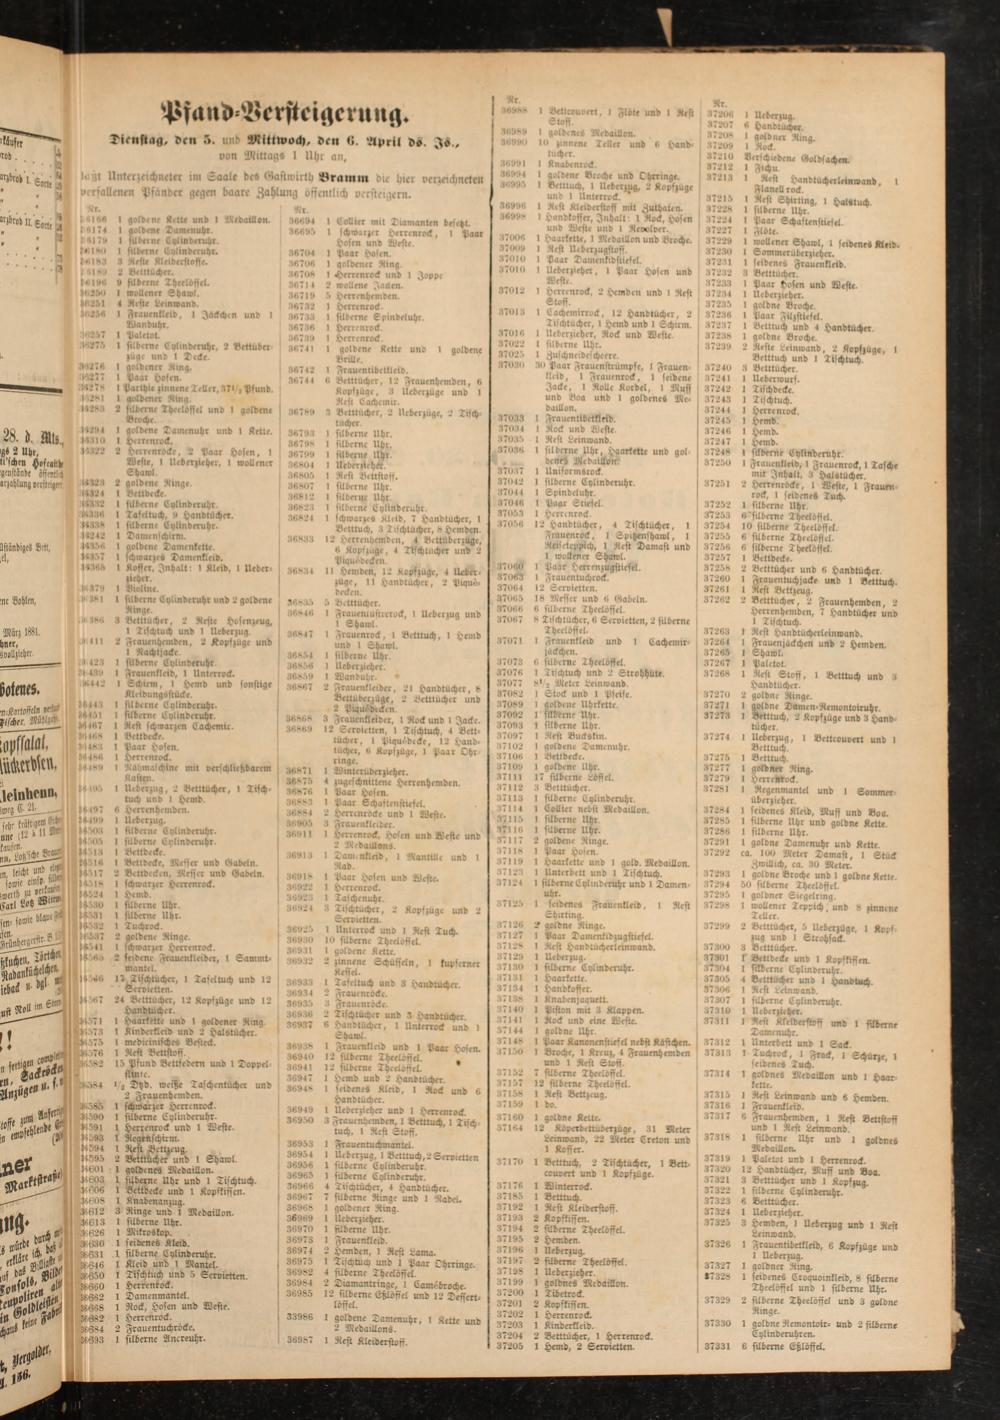 Pfand-Versteigerung.
Dienstag, den 5. und Mittwoch, den 6. April ds. Js.,
von Mittags 1 Uhr an,
läßt Unterzeichneter im Saale des Gastwirth Bramm die hier verzeichneten
verfallenen Pfänder gegen baare Zahlung öffentlich versteigern.
Nr.
36166 1 goldene Kette und 1 Medaillon.
36174 1 goldene Damenuhr.
36179 1 silberne Cylinderuhr.
36180 1 silberne Cylinderuhr.
36183 3 Reste Kleiderstoffe.
36189 2 Betttücher.
36196 9 silberne Theelöffel.
36250 1 wollener Shawl.
36251 4 Reste Leinwand.
36256 1 Frauenkleid, 1 Jäckchen und 1
Wanduhr.
36257 1 Paletot.
36275 1 silberne Cylinderuhr, 2 Bettüber-
züge und 1 Decke.
36276 1 goldener Ring.
36277 1 Paar Hosen.
36278 1 Parthie zinnene Teller, 37½ Pfund.
36281 1 goldener Ring.
36283 2 silberne Theelöffel und 1 goldene
Broche.
36294 1 goldene Damenuhr und 1 Kette.
36310 1 Herrenrock.
36322 2 Herrenröcke, 2 Paar Hosen, 1
Weste, 1 Ueberzieher, 1 wollener
Shawl.
36323 2 goldene Ringe.
36324 1 Bettdecke.
36332 1 silberne Cylinderuhr.
36336 1 Tafeltuch, 9 Handtücher.
36338 1 silberne Cylinderuhr.
36242 1 Damenschirm.
36356 1 goldene Damenkette.
36357 1 schwarzes Damenkleid.
36365 1 Koffer, Inhalt: 1 Kleid, 1 Ueber-
zieher.
36379 1 Violine.
36381 1 silberne Cylinderuhr und 2 goldene
Ringe.
36386 3 Betttücher, 2 Reste Hosenzeug,
1 Tischtuch und 1 Ueberzug.
36411 2 Frauenhemden, 2 Kopfzüge und
1 Nachtjacke.
36423 1 silberne Cylinderuhr.
36439 1 Frauenkleid, 1 Unterrock.
36442 1 Schirm, 1 Hemd und sonstige
Kleidungsstücke.
36443 1 silberne Cylinderuhr.
36451 1 silberne Cylinderuhr.
36467 1 Rest schwarzen Cachemir.
36468 1 Bettdecke.
36483 1 Paar Hosen.
36486 1 Herrenrock.
36489 1 Nähmaschine mit verschließbarem
Kasten.
36495 1 Ueberzug, 2 Betttücher, 1 Tisch-
tuch und 1 Hemd.
36497 6 Herrenhemden.
36499 1 Ueberzug.
36503 1 silberne Cylinderuhr.
36505 1 silberne Cylinderuhr.
36513 1 Bettdecke.
36516 1 Bettdecke, Messer und Gabeln.
36517 2 Bettdecken, Messer und Gabeln.
36518 1 schwarzer Herrenrock.
36524 1 Hemd.
36530 1 silberne Uhr.
36531 1 silberne Uhr.
36532 1 Tuchrock.
36537 2 goldene Ringe.
36541 1 schwarzer Herrenrock.
36565 2 seidene Frauenkleider, 1 Sammt-
mantel.
36566 17 Tischtücher, 1 Tafeltuch und 12
Servietten.
36567 24 Betttücher, 12 Kopfzüge und 12
Handtücher.
36571 1 Haarkette und 1 goldener Ring.
36573 1 Kinderkleid und 2 Halstücher.
36575 1 medicinisches Besteck.
36576 1 Rest Bettstoff.
36582 15 Pfund Bettfedern und 1 Doppel-
flinte.
36584 ½ Dtzd. weiße Taschentücher und
2 Frauenhemden.
36585 1 schwarzer Herrenrock.
36590 1 silberne Cylinderuhr.
36591 1 Herrenrock und 1 Weste.
36593 1 Regenschirm.
36594 1 Rest Bettzeug.
36595 2 Betttücher und 1 Shawl.
36601 1 goldenes Medaillon.
36603 1 silberne Uhr und 1 Tischtuch.
36606 1 Bettdecke und 1 Kopfkissen.
36608 1 Knabenanzug.
36612 3 Ringe und 1 Medaillon.
36613 1 silberne Uhr.
36626 1 Mikroskop.
36630 1 seidenes Kleid.
36631 1 silberne Cylinderuhr.
36646 1 Kleid und 1 Mantel.
36650 1 Tischtuch und 5 Servietten.
36660 1 Herrenrock.
36662 1 Damenmantel.
36668 1 Rock, Hosen und Weste.
36682 1 Herrenrock.
36684 2 Frauentuchröcke.
36693 1 silberne Ancreuhr.
Nr.
36694 1 Collier mit Diamanten besetzt.
36695 1 schwarzer Herrenrock, 1 Paar
Hosen und Weste.
36704 1 Paar Hosen.
36706 1 goldener Ring.
36708 1 Herrenrock und 1 Joppe
36714 2 wollene Jacken.
36719 5 Herrenhemden.
36732 1 Herrenrock.
36733 1 silberne Spindeluhr.
36736 1 Herrenrock.
36739 1 Herrenrock.
36741 1 goldene Kette und 1 goldene
Brille.
36742 1 Frauentibetkleid.
36744 6 Betttücher, 12 Frauenhemden, 6
Kopfzüge, 3 Ueberzüge und 1
Rest Cachemir.
36789 3 Betttücher, 2 Ueberzüge, 2 Tisch-
tücher.
36793 1 silberne Uhr.
36798 1 silberne Uhr.
36799 1 silberne Uhr.
36804 1 Ueberzieher.
36805 1 Rest Bettstoff.
36807 1 silberne Uhr.
36812 1 silberne Uhr.
36823 1 silberne Cylinderuhr.
36824 1 schwarzes Kleid, 7 Handtücher, 1
Betttuch, 3 Tischtücher, 8 Hemden.
36833 12 Herrenhemden, 4 Bettüberzüge,
6 Kopfzüge, 4 Tischtücher und 2
Piquédecken.
36834 11 Hemden, 12 Kopfzüge, 4 Ueber-
züge, 11 Handtücher, 2 Piqué-
decken.
36835 5 Betttücher.
36846 1 Frauenlustrerock, 1 Ueberzug und
1 Shawl.
36847 1 Frauenrock, 1 Betttuch, 1 Hemd
und 1 Shawl.
36854 1 silberne Uhr.
36856 1 Ueberzieher.
36859 1 Wanduhr.
36867 2 Frauenkleider, 21 Handtücher, 8
Bettüberzüge, 2 Betttücher und
2 Piquédecken.
36868 3 Frauenkleider, 1 Rock und 1 Jacke.
36869 12 Servietten, 1 Tischtuch, 4 Bett-
tücher, 1 Piquédecke, 12 Hand-
tücher, 6 Kopfzüge, 1 Paar Ohr-
ringe.
36871 1 Winterüberzieher.
36875 4 zugeschnittene Herrenhemden.
36876 1 Paar Hosen.
36883 1 Paar Schaftenstiefel.
36884 2 Herrenröcke und 1 Weste.
36905 3 Frauenkleider.
36911 1 Herrenrock, Hosen und Weste und
2 Medaillons.
36913 1 Damenkleid, 1 Mantille und 1
Rad.
36918 1 Paar Hosen und Weste.
36922 1 Herrenrock.
36923 1 Taschenuhr.
36924 3 Tischtücher, 2 Kopfzüge und 2
Servietten.
36925 1 Unterrock und 1 Rest Tuch.
36930 10 silberne Theelöffel.
36931 1 goldene Kette.
36932 2 zinnene Schüsseln, 1 kupferner
Kessel.
36933 1 Tafeltuch und 3 Handtücher.
36934 2 Frauenröcke.
36935 3 Frauenröcke.
36936 2 Tischtücher und 3 Handtücher.
36937 6 Handtücher, 1 Unterrock und 1
Shawl.
36938 1 Frauenkleid und 1 Paar Hosen.
36940 12 silberne Theelöffel.
36941 12 silberne Theelöffel.
36947 1 Hemd und 2 Handtücher.
36948 1 seidenes Kleid, 1 Rock und 6
Handtücher.
36949 1 Ueberzieher und 1 Herrenrock.
36950 3 Frauenhemden, 1 Betttuch, 1 Tisch-
tuch, 1 Rest Stoff.
36953 1 Frauentuchmantel.
36954 1 Ueberzug, 1 Betttuch, 2 Servietten
36956 1 silberne Cylinderuhr.
36965 1 silberne Cylinderuhr.
36966 4 Tischtücher, 4 Handtücher.
36967 7 silberne Ringe und 1 Nadel.
36968 1 goldener Ring.
36969 1 Ueberzieher.
36970 1 silberne Uhr.
36973 1 Frauenkleid.
36974 2 Hemden, 1 Rest Lama.
36975 1 Tischtuch und 1 Paar Ohrringe.
36982 4 silberne Theelöffel.
36984 2 Diamantringe, 1 Camébroche.
36985 12 silberne Eßlöffel und 12 Dessert-
löffel.
33986 1 goldene Damenuhr, 1 Kette und
2 Medaillons.
36987 1 Rest Kleiderstoff.
Nr.
36988 1 Bettcouvert, 1 Flöte und 1 Rest
Stoff.
36989 1 goldenes Medaillon.
36990 10 zinnene Teller und 6 Hand-
tücher.
36991 1 Knabenrock.
36994 1 goldene Broche und Ohrringe.
36995 1 Betttuch, 1 Ueberzug, 2 Kopfzüge
und 1 Unterrock.
36996 1 Rest Kleiderstoff mit Zuthaten.
36998 1 Handkoffer, Inhalt: 1 Rock, Hosen
und Weste und 1 Revolver.
37006 1 Haarkette, 1 Medaillon und Broche.
37009 1 Rest Ueberzugstoff.
37010 1 Paar Damenkidstiefel.
37010 1 Ueberzieher, 1 Paar Hosen und
Weste.
37012 1 Herrenrock, 2 Hemden und 1 Rest
Stoff.
37013 1 Cachemirrock, 12 Handtücher, 2
Tischtücher, 1 Hemd und 1 Schirm.
37016 1 Ueberzieher, Rock und Weste.
37022 1 silberne Uhr.
37025 1 Zuschneidescheere.
37030 30 Paar Frauenstrümpfe, 1 Frauen-
kleid, 1 Frauenrock, 1 seidene
Jacke, 1 Rolle Kordel, 1 Muff
und Boa und 1 goldenes Me-
daillon.
37033 1 Frauentibetkleid.
37034 1 Rock und Weste.
37035 1 Rest Leinwand.
37036 1 silberne Uhr, Haarkette und gol-
denes Medaillon.
37037 1 Uniformsrock.
37042 1 silberne Cylinderuhr.
37044 1 Spindeluhr.
37046 1 Paar Stiefel.
37055 1 Herrenrock.
37056 12 Handtücher, 4 Tischtücher, 1
Frauenrock, 1 Spitzenshawl, 1
Reiseteppich, 1 Rest Damast und
1 wollener Shawl.
37060 1 Paar Herrenzugstiefel.
37063 1 Frauentuchrock.
37064 12 Servietten.
37065 18 Messer und 6 Gabeln.
37066 6 silberne Theelöffel.
37067 8 Tischtücher, 6 Servietten, 2 silberne
Theelöffel.
37071 1 Frauenkleid und 1 Cachemir-
jäckchen.
37073 6 silberne Theelöffel.
37076 1 Tischtuch und 2 Strohhüte.
37077 8½ Meter Leinwand.
37082 1 Stock und 1 Pfeife.
37089 1 goldene Uhrkette.
37092 1 silberne Uhr.
37093 1 silberne Uhr.
37097 1 Rest Buckskin.
37102 1 goldene Damenuhr.
37106 1 Bettdecke.
37109 1 goldene Uhr.
37111 17 silberne Löffel.
37112 3 Betttücher.
37113 1 silberne Cylinderuhr.
37114 1 Collier nebst Medaillon.
37115 1 silberne Uhr.
37116 1 silberne Uhr.
37117 2 goldene Ringe.
37118 1 Paar Hosen.
37119 1 Haarkette und 1 gold. Medaillon.
37123 1 Unterbett und 1 Tischtuch.
37124 1 silberne Cylinderuhr und 1 Damen-
uhr.
37125 1 seidenes Frauenkleid, 1 Rest
Shirting.
37126 2 goldene Ringe.
37127 1 Paar Damenkidzugstiefel.
37128 1 Rest Handtücherleinwand.
37129 1 Ueberzug.
37130 1 silberne Cylinderuhr.
37131 1 Haarkette.
37134 1 Handkoffer.
37138 1 Knabenjaquett.
37140 1 Piston mit 3 Klappen.
37141 1 Rock und eine Weste.
37144 1 goldne Uhr.
37148 1 Paar Kanonenstiefel nebst Käfichen.
37150 1 Broche, 1 Kreuz, 4 Frauenhemden
und 1 Rest Stoff.
37152 7 silberne Theelöffel.
37157 12 silberne Theelöffel.
37158 1 Rest Bettzeug.
37159 1 do.
37160 1 goldne Kette.
37164 12 Köperbettüberzüge, 31 Meter
Leinwand, 22 Meter Creton und
1 Koffer.
37170 1 Betttuch, 2 Tischtücher, 1 Bett-
couvert und 1 Kopfzüge.
37176 1 Winterrock.
37185 1 Betttuch.
37192 1 Rest Kleiderstoff.
37193 2 Kopfkissen.
37194 2 silberne Theelöffel.
37195 2 Hemden.
37196 1 Ueberzug.
37197 2 silberne Theelöffel.
37198 1 Ueberzieher.
37199 1 goldnes Medaillon.
37200 1 Tibetrock.
37201 2 Kopfkissen.
37202 1 Herrenrock.
37203 1 Kinderkleid.
37204 2 Betttücher, 1 Herrenrock.
37205 1 Hemd, 2 Servietten.
Nr.
37206 1 Ueberzug.
37207 6 Handtücher.
37208 1 goldner Ring.
37209 1 Rock.
37210 Verschiedene Goldsachen.
37212 1 Fichu.
37213 1 Rest Handtücherleinwand, 1
Flanellrock.
37215 1 Rest Shirting, 1 Halstuch.
37228 1 silberne Uhr.
37224 1 Paar Schaftenstiefel.
37227 1 Flöte.
37229 1 wollener Shawl, 1 seidenes Kleid.
37230 1 Sommerüberzieher.
37231 1 seidenes Frauenkleid.
37232 3 Betttücher.
37233 1 Paar Hosen und Weste.
37234 1 Ueberzieher.
37235 1 goldne Broche.
37236 1 Paar Filzstiefel.
37237 1 Betttuch und 4 Handtücher.
37238 1 goldne Broche.
37239 2 Reste Leinwand, 2 Kopfzüge, 1
Betttuch und 1 Tischtuch.
37240 3 Betttücher.
37241 1 Ueberwurf.
37242 1 Tischdecke.
37243 1 Tischtuch.
37244 1 Herrenrock.
37245 1 Hemd.
37246 1 Hemd.
37247 1 Hemd.
37248 1 silberne Cylinderuhr.
37250 1 Frauenkleid, 1 Frauenrock, 1 Tasche
mit Inhalt, 3 Halstücher.
37251 2 Herrenröcke, 1 Weste, 1 Frauen-
rock, 1 seidenes Tuch.
37252 1 silberne Uhr.
37253 6 silberne Theelöffel.
37254 10 silberne Theelöffel.
37255 6 silberne Theelöffel.
37256 6 silberne Theelöffel.
37257 1 Bettdecke.
37258 2 Betttücher und 6 Handtücher.
37260 1 Frauentuchjacke und 1 Betttuch.
37261 1 Rest Bettzeug.
37262 2 Betttücher, 2 Frauenhemden, 2
Herrenhemden, 7 Handtücher und
1 Tischtuch.
37263 1 Rest Handtücherleinwand.
37264 1 Frauenjäckchen und 2 Hemden.
37265 1 Shawl.
37267 1 Paletot.
37268 1 Rest Stoff, 1 Betttuch und 3
Handtücher.
37270 2 goldne Ringe.
37271 1 goldne Damen-Remontoiruhr.
37273 1 Betttuch, 2 Kopfzüge und 3 Hand-
tücher.
37274 1 Ueberzug, 1 Bettcouvert und 1
Betttuch.
37275 1 Betttuch.
37277 1 goldner Ring.
37279 1 Herrenrock.
37281 1 Regenmantel und 1 Sommer-
überzieher.
37284 1 seidenes Kleid, Muff und Boa.
37285 1 silberne Uhr und goldne Kette.
37286 1 silberne Uhr.
37291 1 goldne Damenuhr und Kette.
37292 ca. 100 Meter Damast, 1 Stück
Zwillich, ca. 30 Meter.
37293 1 goldne Broche und 1 goldne Kette.
37294 50 silberne Theelöffel.
37295 1 goldner Siegelring.
37298 1 wollener Teppich, und 8 zinnene
Teller.
37299 2 Betttücher, 5 Ueberzüge, 1 Kopf-
zug und 1 Strohsack.
37300 3 Betttücher.
37301 1 Bettdecke und 1 Kopfkissen.
37304 1 silberne Cylinderuhr.
37305 4 Betttücher und 1 Handtuch.
37306 1 Rest Leinwand.
37307 1 silberne Cylinderuhr.
37310 1 Ueberzieher.
37311 1 Rest Kleiderstoff und 1 silberne
Damenuhr.
37312 1 Unterbett und 1 Sack.
37313 1 Tuchrock, 1 Frack, 1 Schürze, 1
seidenes Tuch.
37314 1 goldnes Medaillon und 1 Haar-
kette.
37315 1 Rest Leinwand und 6 Hemden.
37316 1 Frauenkleid.
37317 6 Frauenhemden, 1 Rest Bettstoff
und 1 Rest Leinwand.
37318 1 silberne Uhr und 1 goldnes
Medaillon.
37319 1 Paletot und 1 Herrenrock.
37320 12 Handtücher, Muff und Boa.
37321 3 Betttücher und 1 Kopfzug.
37322 1 silberne Cylinderuhr.
37323 6 Betttücher.
37324 1 Ueberzieher.
37325 3 Hemden, 1 Ueberzug und 1 Rest
Leinwand.
37326 1 Frauentibetkleid, 6 Kopfzüge und
1 Ueberzug.
37327 1 goldner Ring.
37328 1 seidenes Croquoinkleid, 8 silberne
Theelöffel und 1 silberne Uhr.
37329 2 silberne Theelöffel und 3 goldne
Ringe.
37330 1 goldne Remontoir- und 2 silberne
Cylinderuhren.
37331 6 silberne Eßlöffel.